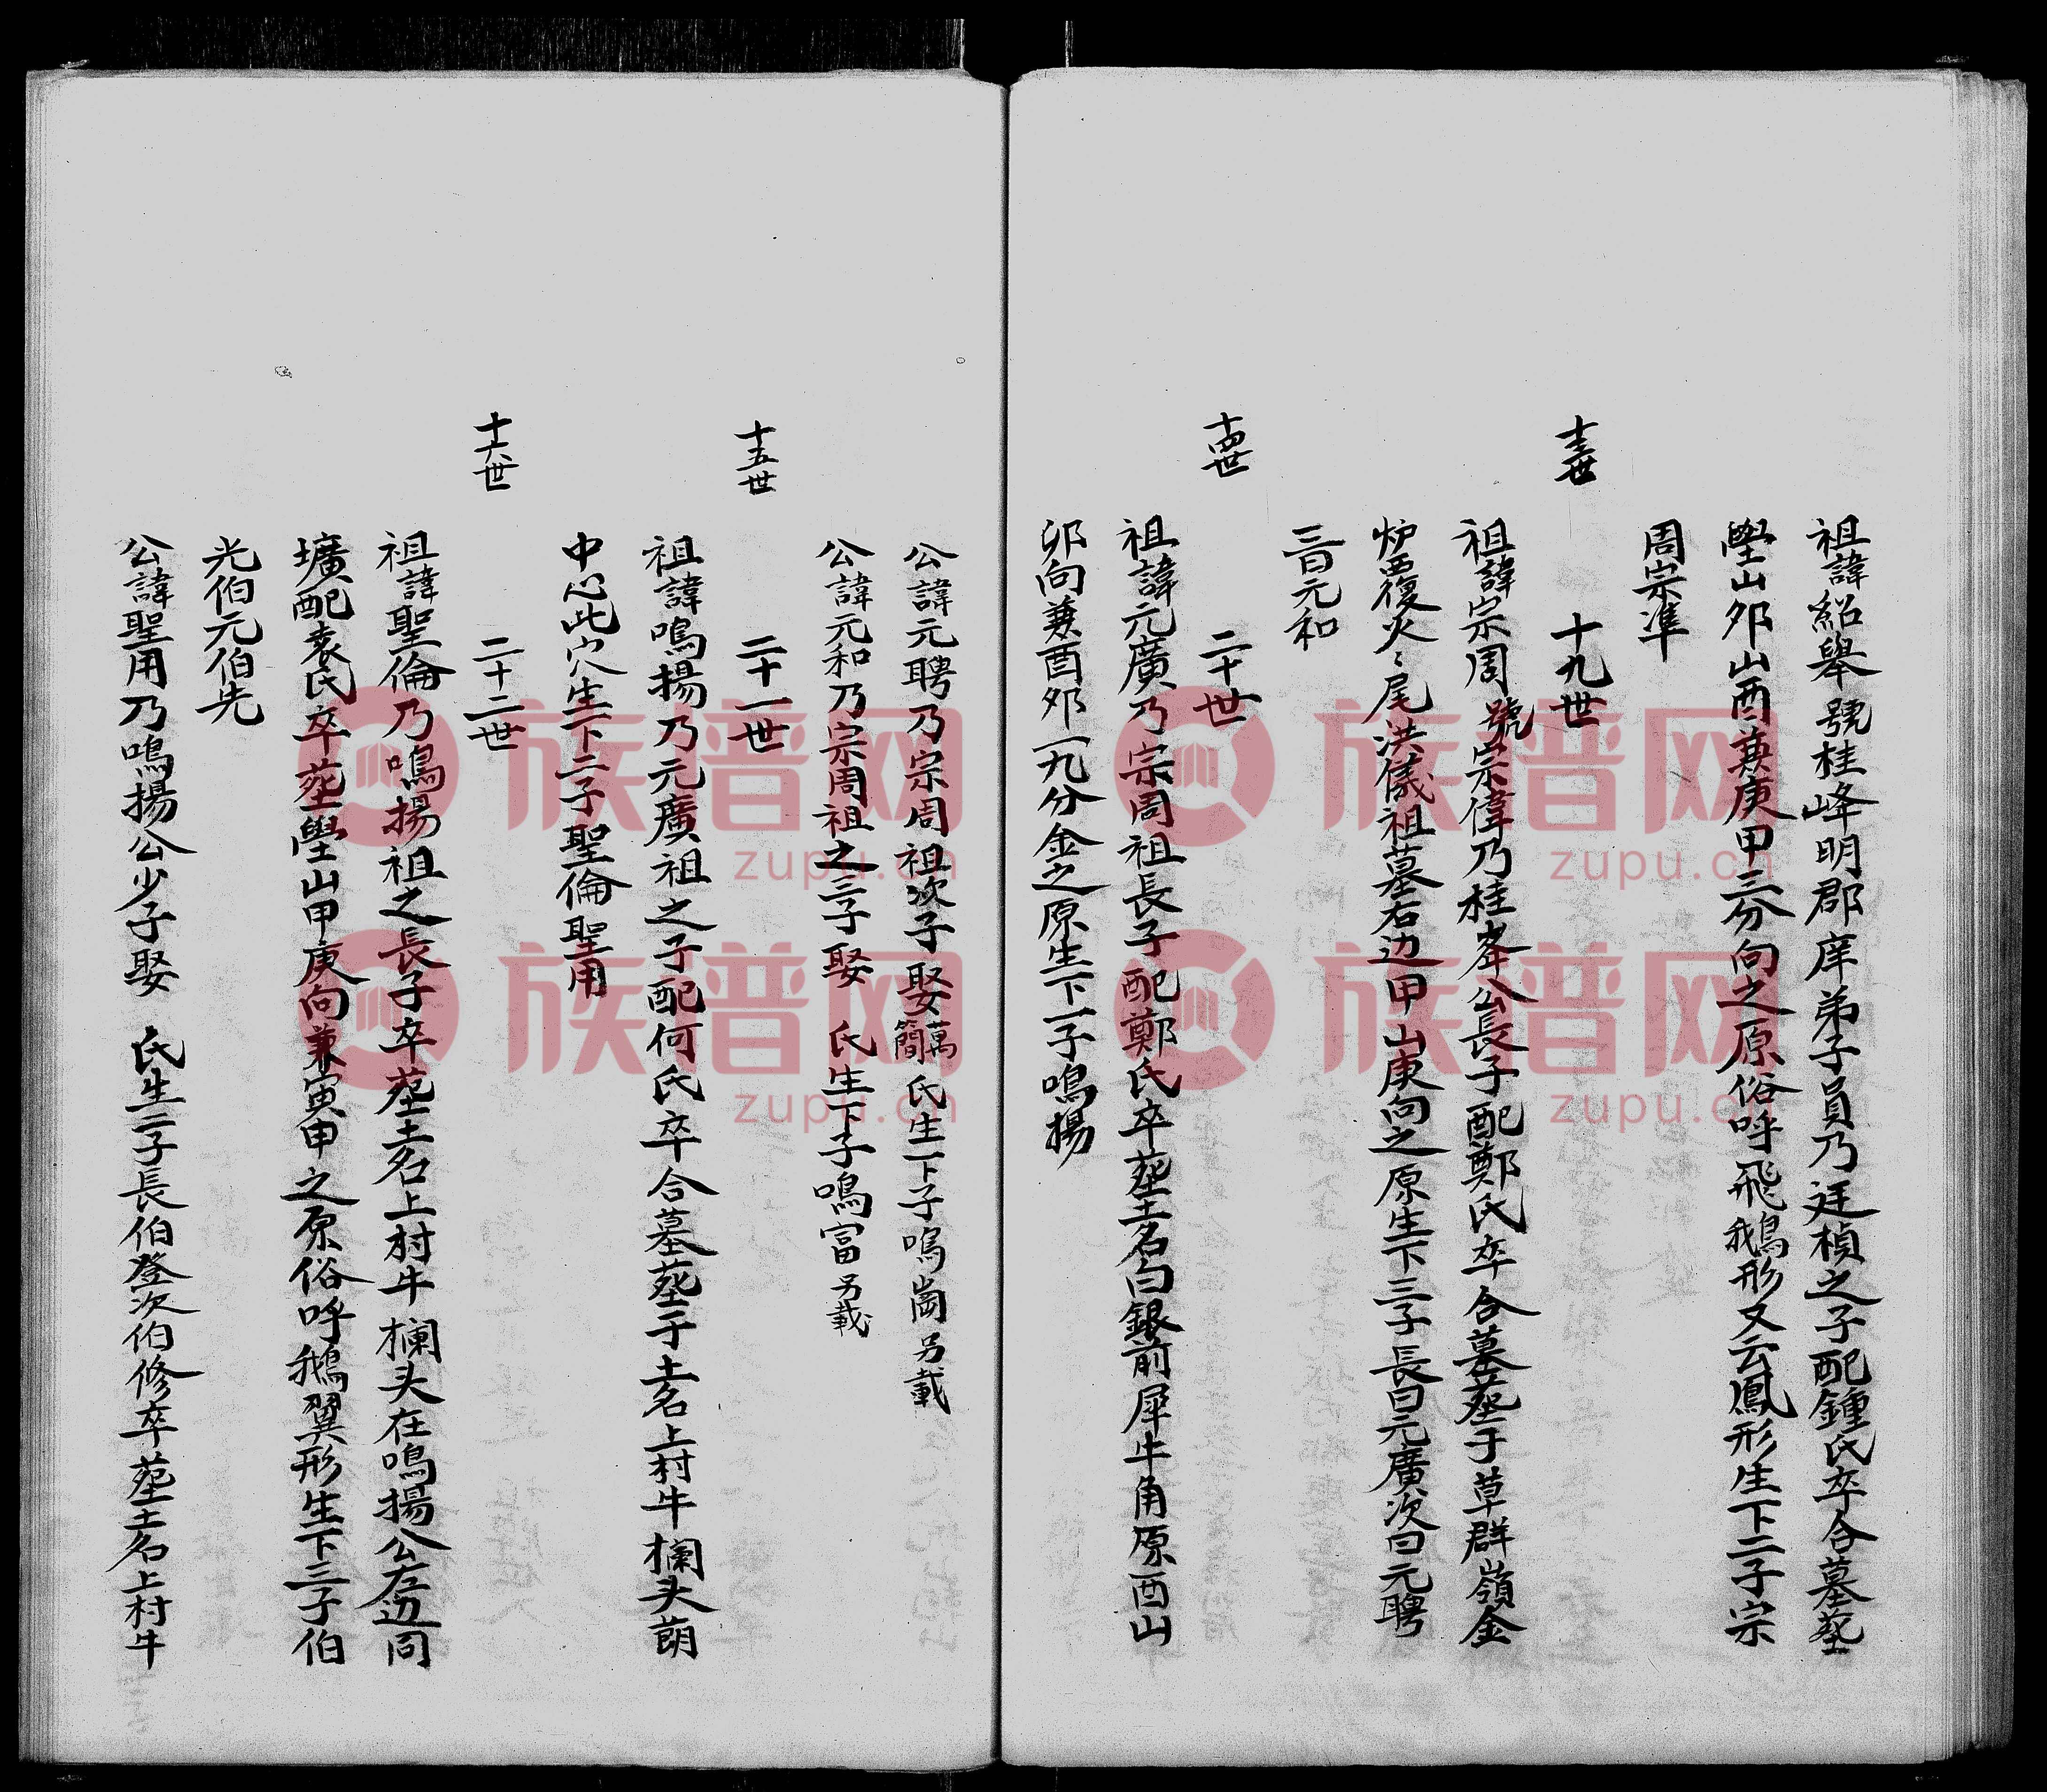 祖諱紹舉號桂峰明郡庠弟子員乃廷楨之子配鍾氏卒合墓塟
壆山夘山酉兼庚甲三分向之原俗呼飛鵝形又云鳳形生下二子宗
周宗準
十三世 十九世
祖諱宗周號宗偉乃桂峯公長子配鄭氏卒合墓塟于草群嶺金
炉覆火々尾洪儀祖墓右边甲山庚向之原生下三子長曰元廣次曰元聘
三曰元和
十四世 二十世
祖諱元廣乃宗周祖長子配鄭氏卒塟土名白銀前犀牛角原酉山
夘向兼酉夘一九分金之原生下一子鳴揚
公諱元聘乃宗周祖次子娶萬簡氏生一下子鳴崗另載
公諱元和乃宗周祖之三子娶 氏生下子鳴富另載
十五世 二十一世
祖諱鳴揚乃元廣祖之子配何氏卒合墓塟于土名上村牛欄头萌
中心此穴生下二子聖倫聖用
十六世 二十二世
祖諱聖倫乃鳴揚祖之長子卒塟土名上村牛欄头在鳴揚公左边同
壙配袁氏卒塟壆山甲庚向兼寅申之原俗呼鵝翼形生下三子伯
光伯元伯先
公諱聖用乃鳴揚公少子娶 氏生二子長伯登次伯修卒塟土名上村牛
族谱网
zupu.cn
族谱网
zupu.cn
族谱网
zupu.cn
族谱网
zupu.cn